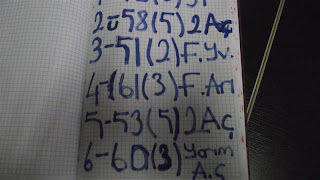 2-58(5)2Aç
3-51(2)F.Yv.
4-161(3)F.Arı
5-53(5)2Aç
6-60(3)Yarım
A.Ç